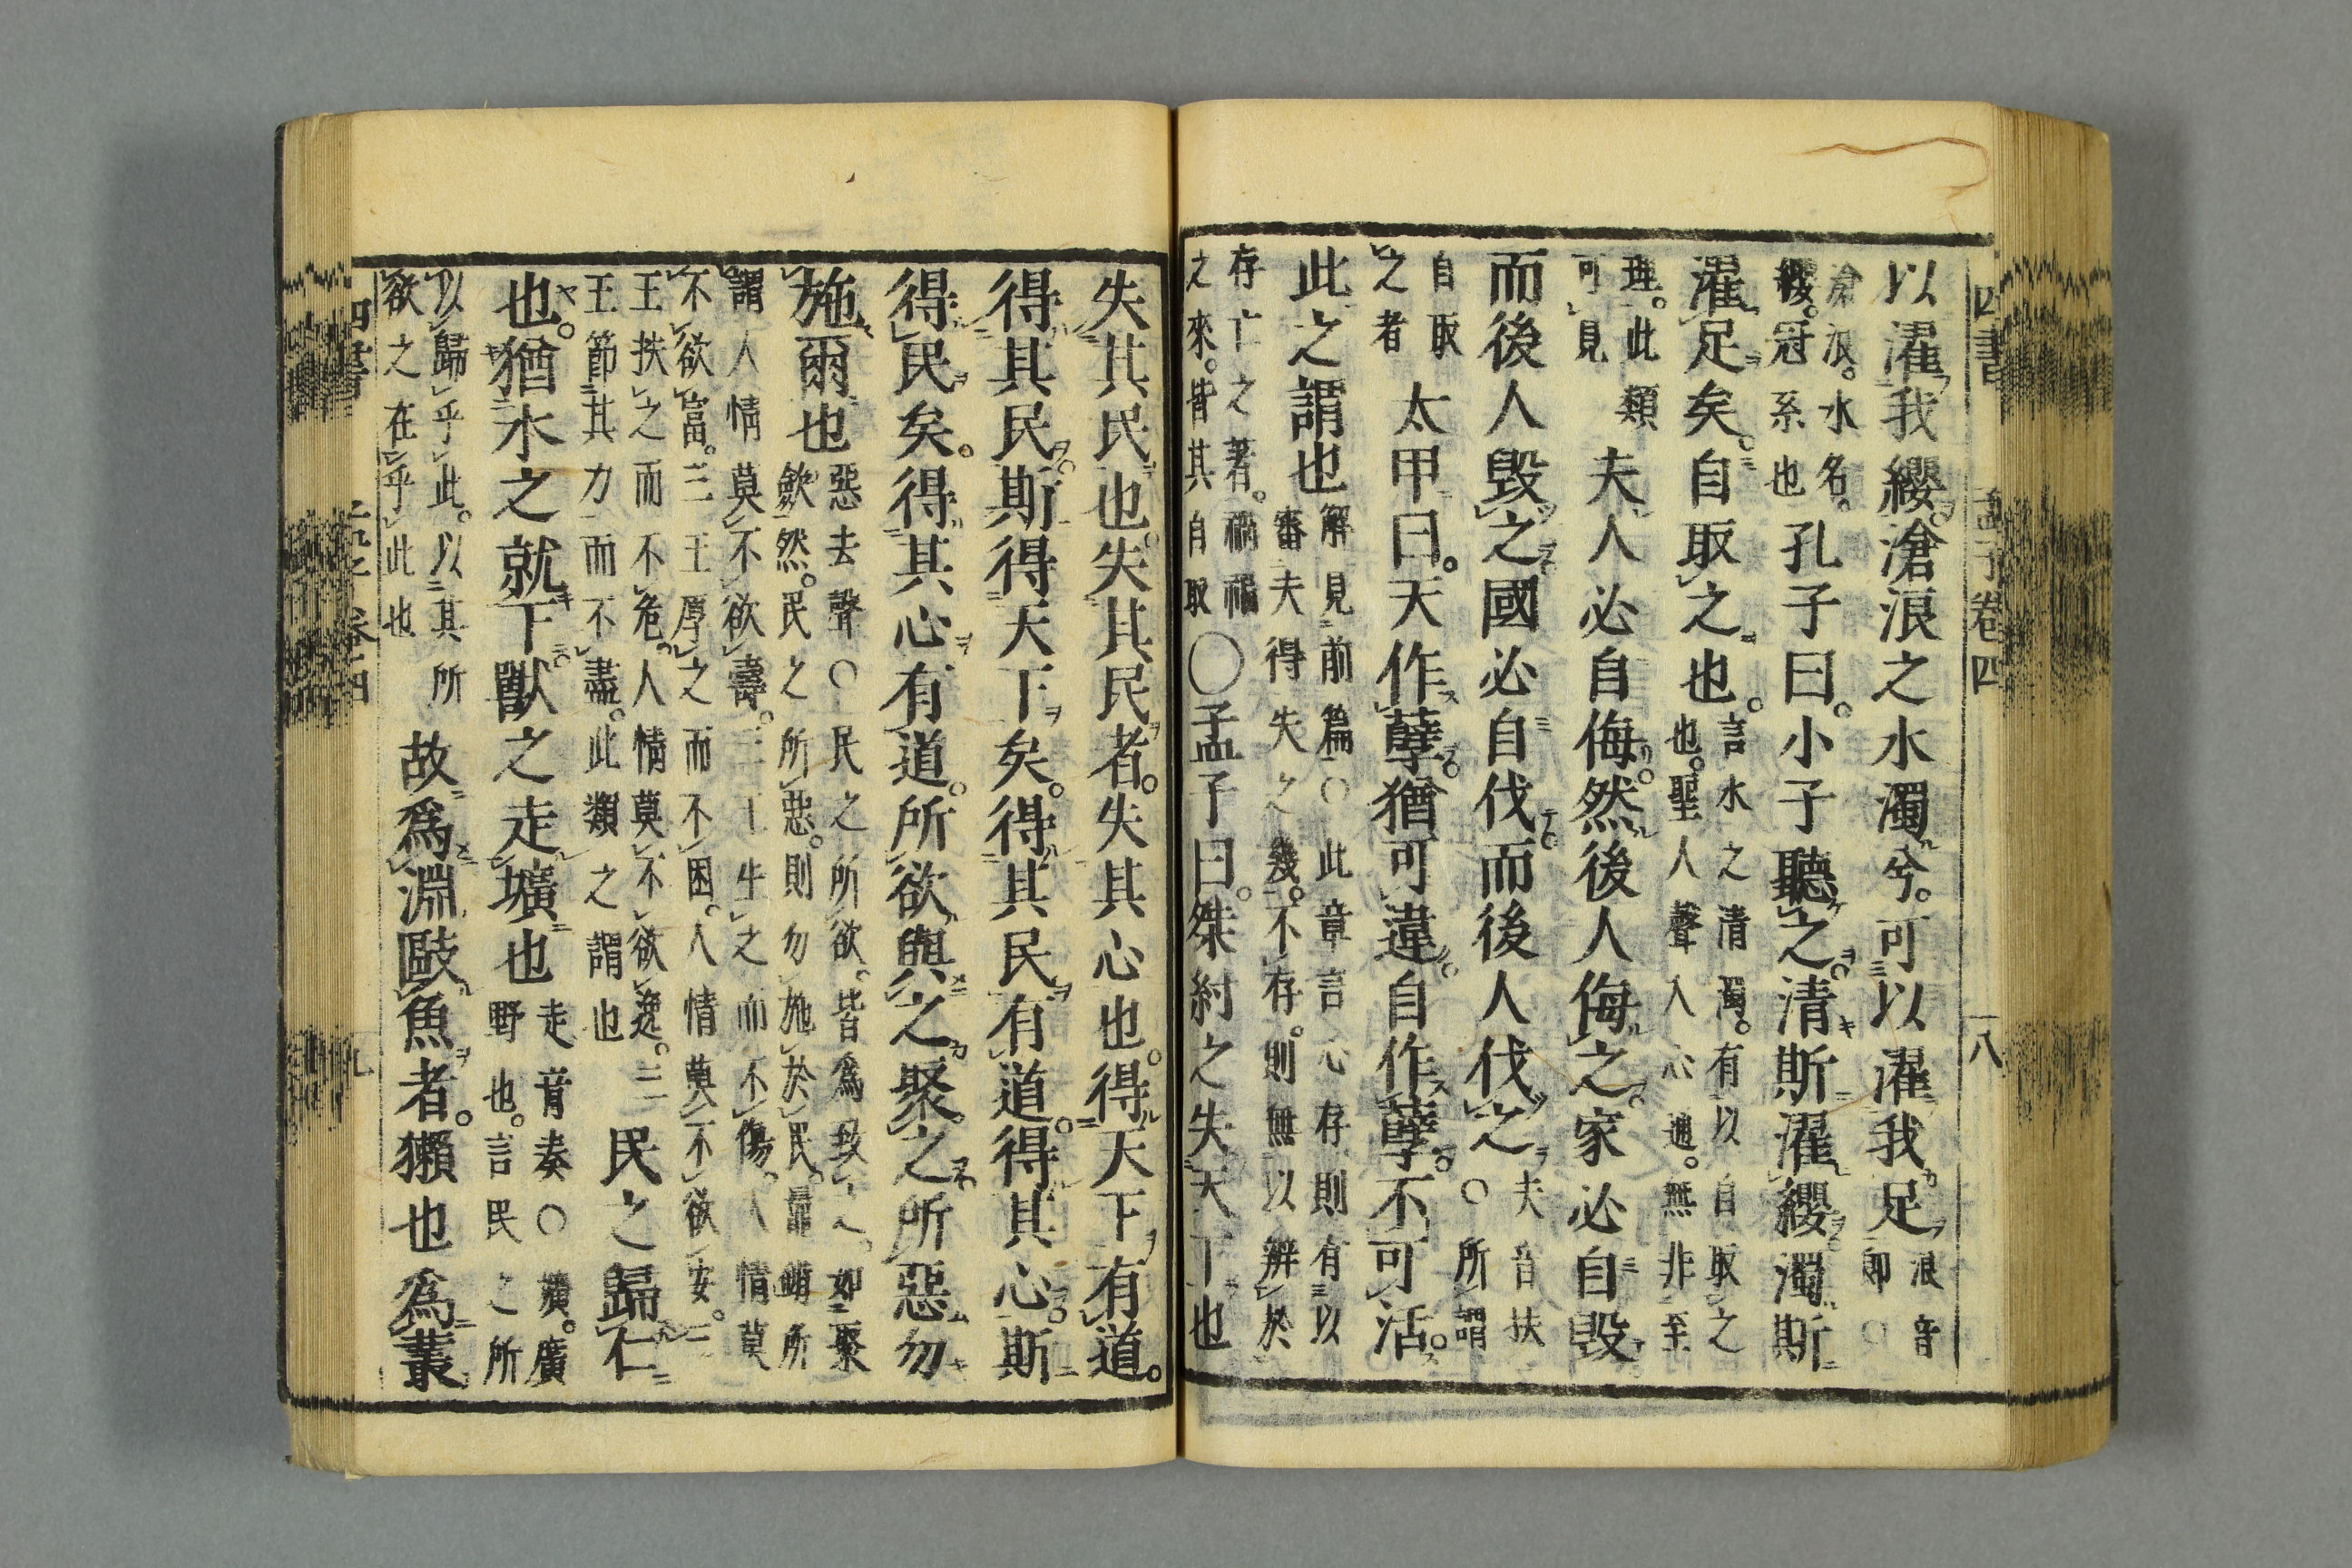 四書 孟子卷四 八
以濯我纓滄浪之水濁兮。可以濯我足 浪音
郎○
滄浪。水名。
纓。冠系也 孔子曰。小子聽之。清斯濯纓。濁斯
濯足矣。自取之也。 言水之清濁。有以自取之
也。聖人聲入心通。無非至
理。此類
可見 夫人必自侮。然後人侮之。家必自毀
而後人毀之國必自伐。而後人伐之 夫音扶
○所謂
自取
之者 太甲曰。天作孽。猶可違。自作孽。不可活。
此之謂也 解見前篇○此章言心存則有以
審夫得失之幾。不存。則無以辨於
存亡之著。禍福
之來。皆其自取 ○孟子曰。桀紂之失天下也
失其民也。失其民者。失其心也。得天下有道。
得其民。斯得天下矣。得其民有道。得其心。斯
得民矣。得其心有道。所欲與之聚。之所惡勿
施爾也 惡去聲○民之所欲。皆爲致之。如聚
斂然。民之所惡。則勿施於民。鼂錯所
謂人情莫不欲壽。三王生之而不傷。人情莫
不欲富。三王厚之而不困。人情莫不欲安。三
王扶之而不危。人情莫不欲逸。三
王節其力而不盡。此類之謂也 民之歸仁
也。猶水之就下。獸之走壙也 走音奏○壙。廣
野也。言民之所
以歸乎此。以其所
欲之在乎此也 故爲淵敺魚者。獺也爲叢
四書 孟子卷四 九